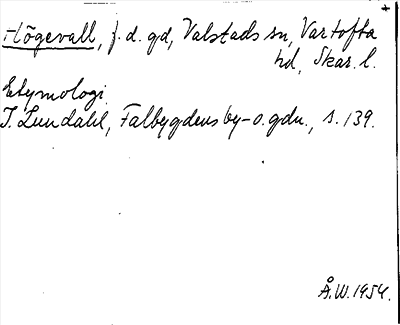 Högevall, f.d. gd, Valstads sn, Vartofta
hd, Skar. l.
Etymologi
I. Lundahl, Falbygdens by- o. gdn., s. 139.
Å.W. 1954.